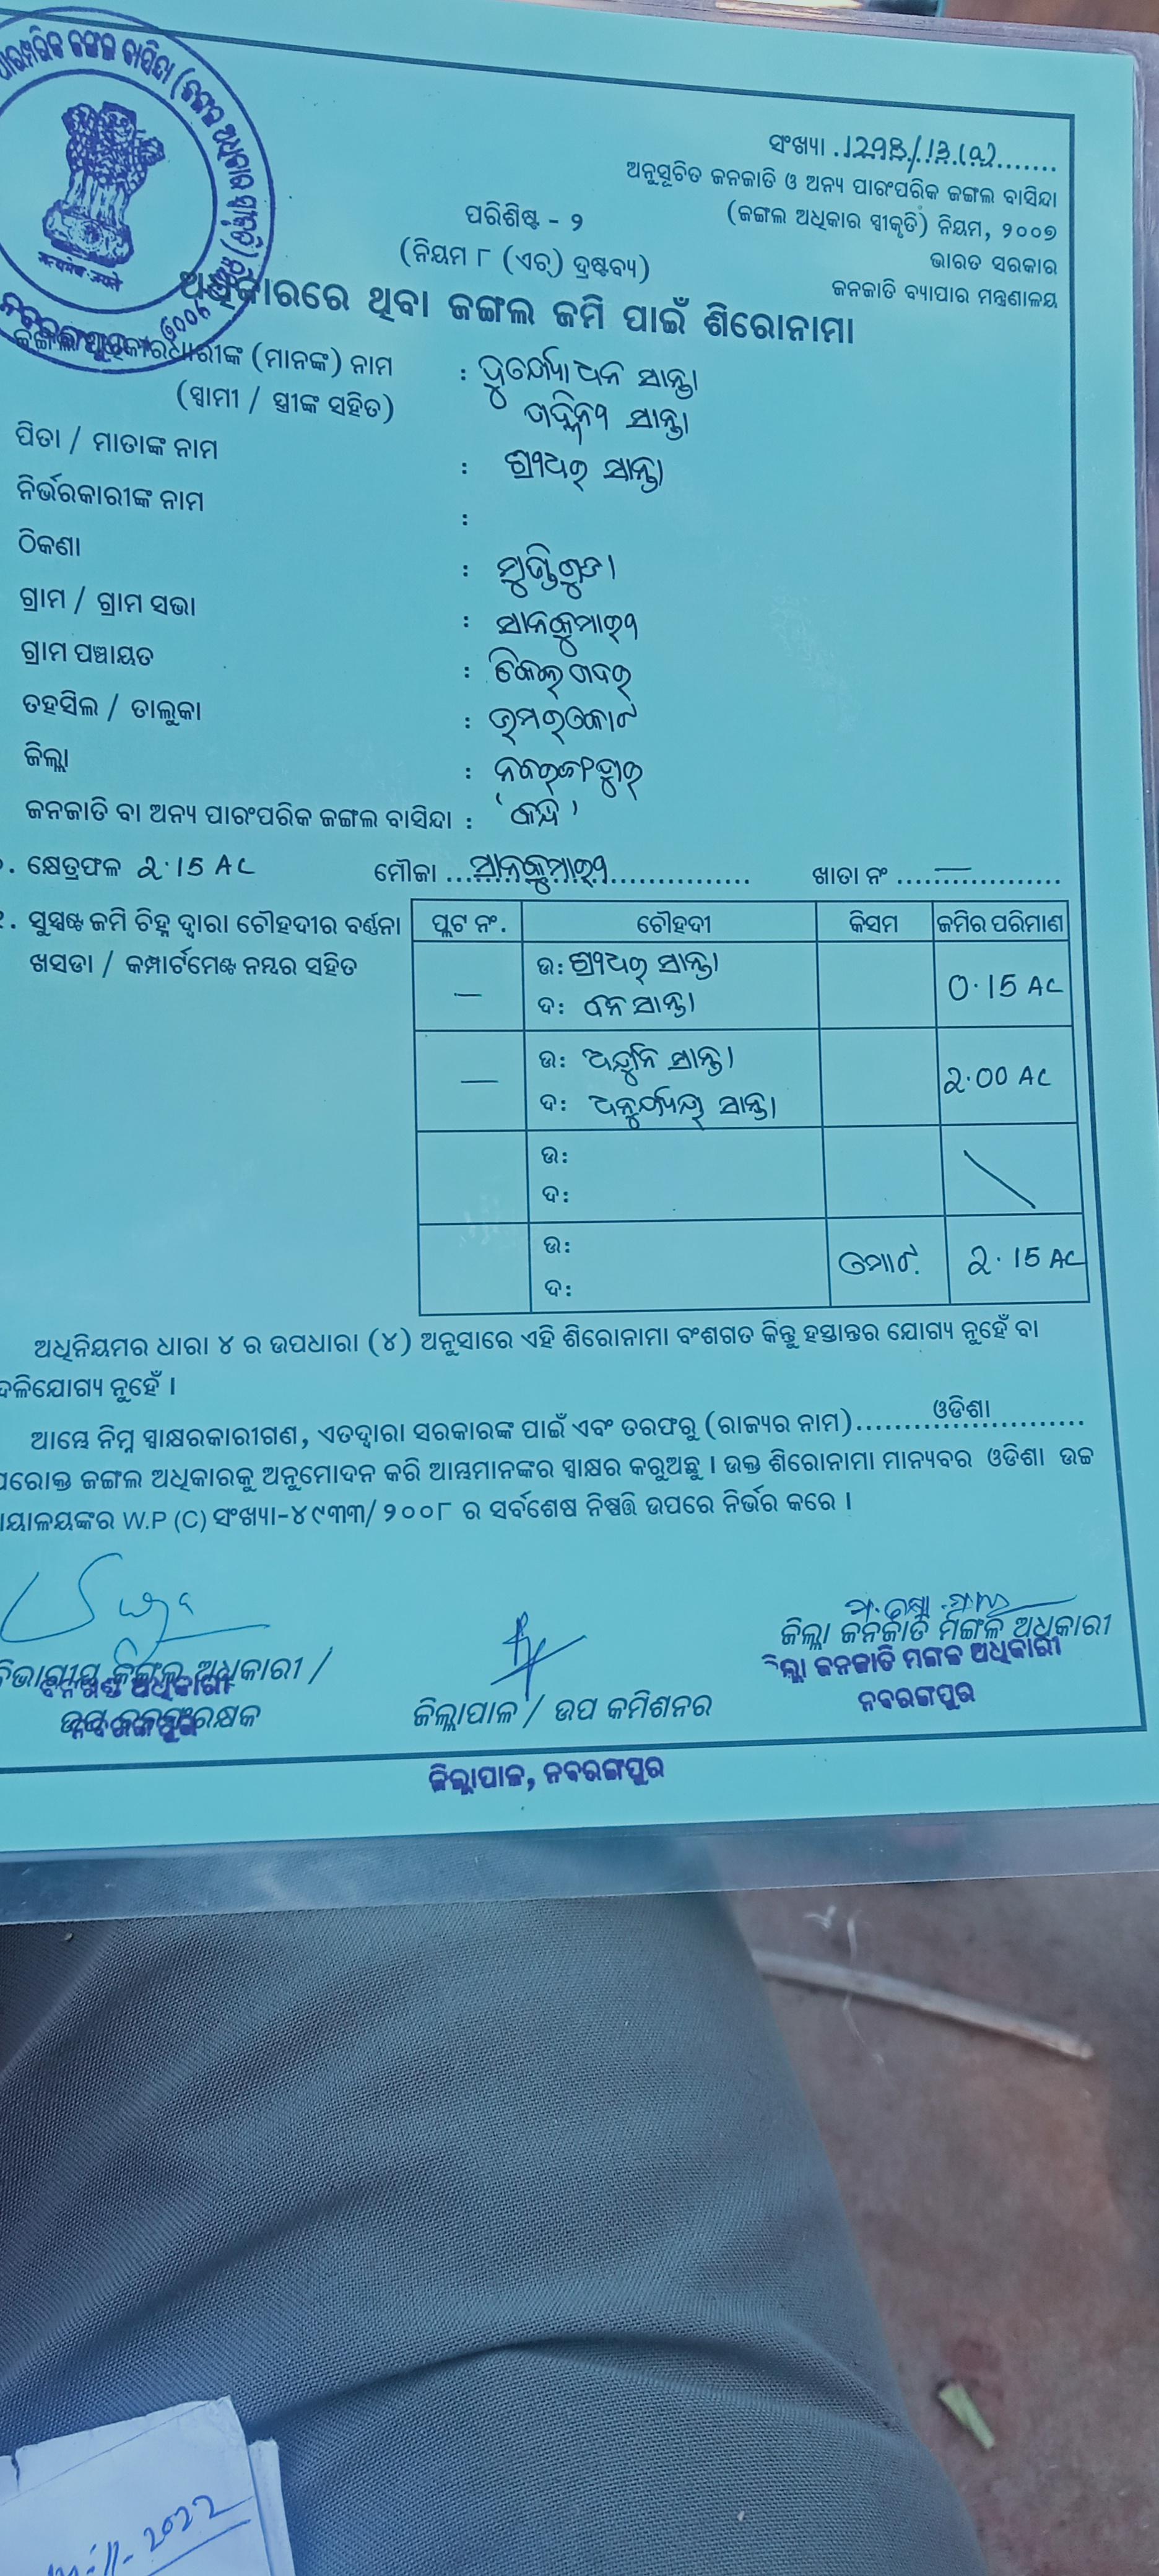 ପାରମ୍ପରିକ ଜଙ୍ଗଲ ବାସିନ୍ଦା (ଜଙ୍ଗଲ ଅଧିକାର ସ୍ୱୀକୃତି)
ସଂଖ୍ୟା .1298/13(a)
ଅନୁସୂଚିତ ଜନଜାତି ଓ ଅନ୍ୟ ପାରଂପରିକ ଜଙ୍ଗଲ ବାସିନ୍ଦା
(ଜଙ୍ଗଲ ଅଧିକାର ସ୍ୱୀକୃତି) ନିୟମ, ୨୦୦୭
ଭାରତ ସରକାର
ଜନଜାତି ବ୍ୟାପାର ମନ୍ତ୍ରଣାଳୟ
ପରିଶିଷ୍ଟ - ୨
(ନିୟମ ୮ (ଏଚ୍) ଦ୍ରଷ୍ଟବ୍ୟ)
ଅଧିକାରରେ ଥିବା ଜଙ୍ଗଲ ଜମି ପାଇଁ ଶିରୋନାମା
ଜଙ୍ଗଲ ଅଧିକାରଧାରୀଙ୍କ (ମାନଙ୍କ) ନାମ : ଦୁର୍ଯ୍ୟୋଧନ ସାନ୍ତା
(ସ୍ୱାମୀ / ସ୍ତ୍ରୀଙ୍କ ସହିତ) ସାନ୍ତା
ପିତା / ମାତାଙ୍କ ନାମ : ଶ୍ରୀଧର ସାନ୍ତା
ନିର୍ଭରକାରୀଙ୍କ ନାମ :
ଠିକଣା : ମୁଣ୍ଡିଗୁଡା
ଗ୍ରାମ / ଗ୍ରାମ ସଭା : ସାନକୁମାରୀ
ଗ୍ରାମ ପଞ୍ଚାୟତ :
ତହସିଲ / ତାଲୁକା : ଉମରକୋଟ
ଜିଲ୍ଲା : ନବରଙ୍ଗପୁର
ଜନଜାତି ବା ଅନ୍ୟ ପାରଂପରିକ ଜଙ୍ଗଲ ବାସିନ୍ଦା :
. କ୍ଷେତ୍ରଫଳ 2.15 AC ମୌଜା ସାନକୁମାରୀ ଖାତା ନଂ —
. ସୁସ୍ପଷ୍ଟ ଜମି ଚିହ୍ନ ଦ୍ୱାରା ଚୌହଦୀର ବର୍ଣ୍ଣନା
ଖସଡା / କମ୍ପାର୍ଟମେଣ୍ଟ ନମ୍ବର ସହିତ
ପ୍ଲଟ ନଂ. ଚୌହଦୀ କିସମ ଜମିର ପରିମାଣ
— ଉ: ଶ୍ରୀଧର ସାନ୍ତା 0.15 AC
ଦ: ସାନ୍ତା
— ଉ: ସାନ୍ତା 2.00 AC
ଦ: ସାନ୍ତା
ଉ:
ଦ:
ଉ: ମୋଟ. 2.15 AC
ଦ:
ଅଧିନିୟମର ଧାରା ୪ ର ଉପଧାରା (୪) ଅନୁସାରେ ଏହି ଶିରୋନାମା ବଂଶଗତ କିନ୍ତୁ ହସ୍ତାନ୍ତର ଯୋଗ୍ୟ ନୁହେଁ ବା
ଦଳିଯୋଗ୍ୟ ନୁହେଁ ।
ଆମ୍ଭେ ନିମ୍ନ ସ୍ୱାକ୍ଷରକାରୀଗଣ, ଏତଦ୍ୱାରା ସରକାରଙ୍କ ପାଇଁ ଏବଂ ତରଫରୁ (ରାଜ୍ୟର ନାମ) ଓଡିଶା
ପରୋକ୍ତ ଜଙ୍ଗଲ ଅଧିକାରକୁ ଅନୁମୋଦନ କରି ଆମ୍ଭମାନଙ୍କର ସ୍ୱାକ୍ଷର କରୁଅଛୁ । ଉକ୍ତ ଶିରୋନାମା ମାନ୍ୟବର ଓଡିଶା ଉଚ୍ଚ
ୟାୟାଳୟଙ୍କର W.P (C) ସଂଖ୍ୟା-୪୯୩୩/ ୨୦୦୮ ର ସର୍ବଶେଷ ନିଷ୍ପତ୍ତି ଉପରେ ନିର୍ଭର କରେ ।
ବିଭାଗୀୟ ଜଙ୍ଗଲ ଅଧିକାରୀ /
ଉପ ବନସଂରକ୍ଷକ
ବନଖଣ୍ଡ ଅଧିକାରୀ
ନବରଙ୍ଗପୁର
ଜିଲ୍ଲାପାଳ / ଉପ କମିଶନର
ଜିଲ୍ଲାପାଳ, ନବରଙ୍ଗପୁର
ଜିଲ୍ଲା ଜନଜାତି ମଙ୍ଗଳ ଅଧିକାରୀ
ଜିଲ୍ଲା ଜନଜାତି ମଙ୍ଗଳ ଅଧିକାରୀ
ନବରଙ୍ଗପୁର
2022